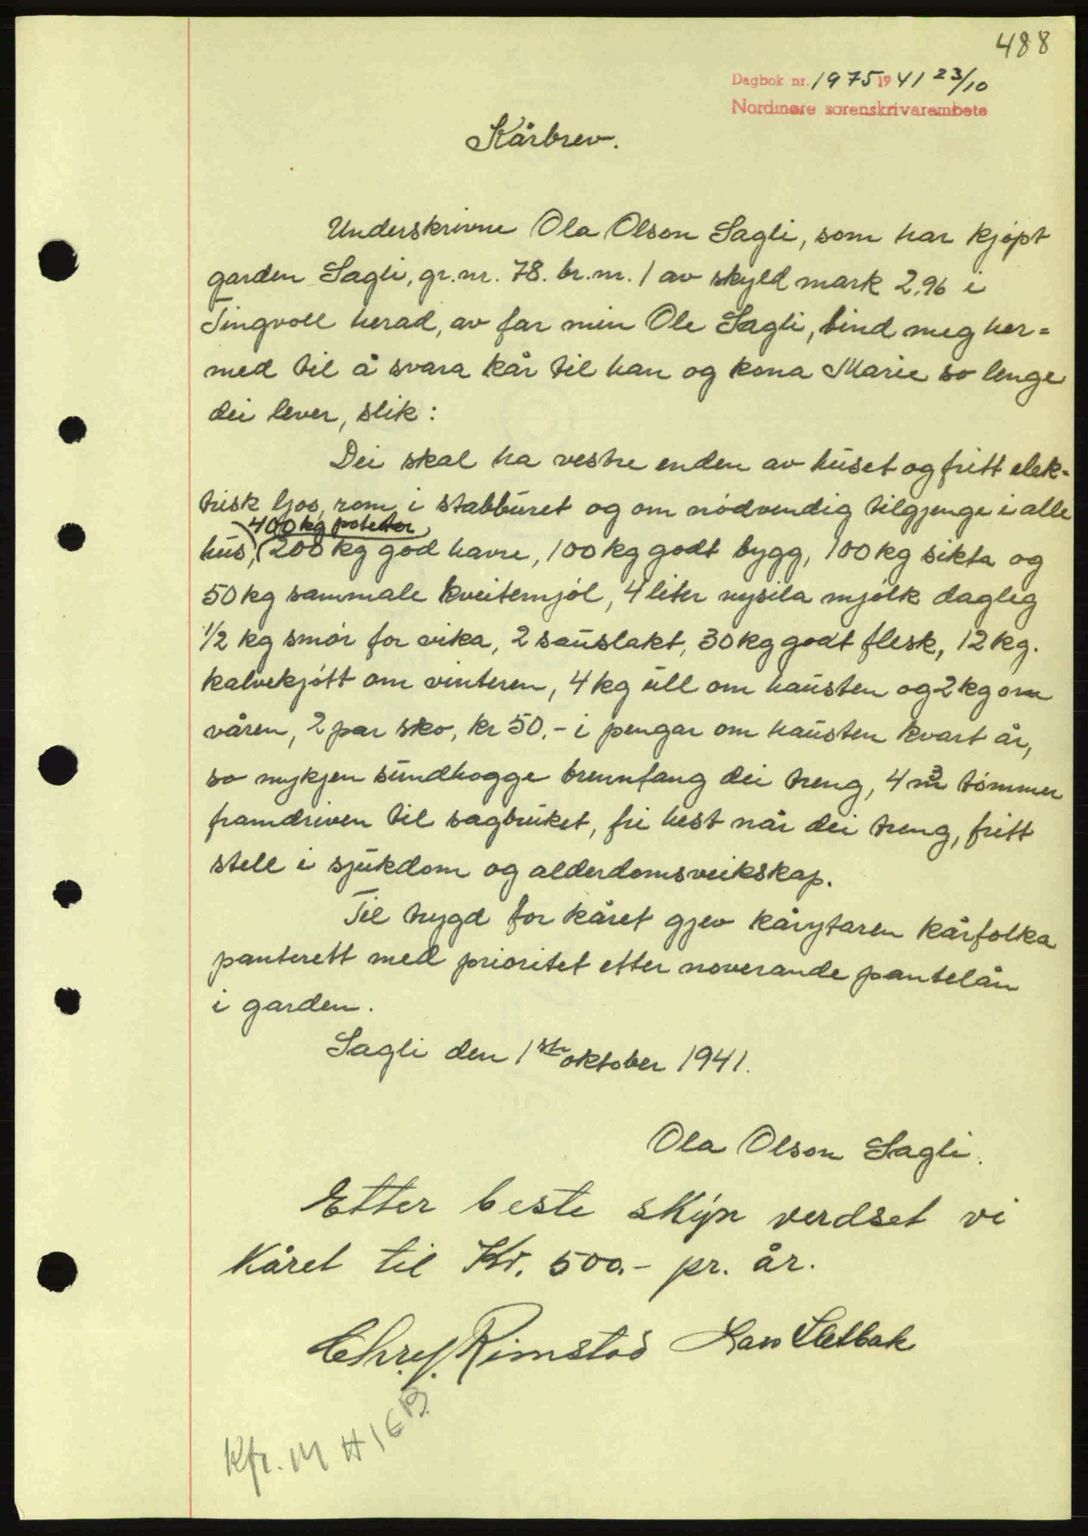 488
Dagbok nr. 1975 1941 23/10
Nordmøre sorenskrivarembete
Kårbrev.
Underskrivne Ola Olson Sagli, som har kjøpt
garden Sagli, gr.nr. 78. br.nr. 1 av skyld mark 2,96 i
Tingvoll herad, av far min Ole Sagli, bind meg her=
med til å svara kår til han og kona Marie so lenge
dei lever, slik:
Dei skal ha vestre enden av huset og fritt elek-
trisk ljos, rom i stabburet og om nødvendig tilgjenge i alle
400 kg poteter
hus, 200 kg god havre, 100 kg godt bygg, 100 kg sikta og
50 kg sammale kveitemjøl, 4 liter nysila mjølk daglig
1/2 kg smør for vika, 2 sauslakt, 30 kg godt flesk, 12 kg.
kalvekjøtt om vinteren, 4 kg ull om hausten og 2 kg om
våren, 2 par sko, kr 50,- i pengar om hausten kvart år,
so mykjen sundhogge brennfang dei treng, 4 m³ tømmer
framdriven til sagbruket, fri hest når dei treng, fritt
stell i sjukdom og alderdomsveikskap.
Til trygd for kåret gjev kårytaren kårfolka
panterett med prioritet etter noverande pantelån
i garden.
Sagli den 1ste oktober 1941.
Ola Olson Sagli.
Etter beste skjøn verdset vi
Kåret til Kr. 500.- pr. år.
Chr. J. Rimstad Lars Sletbak
Kfr. M H 16 B